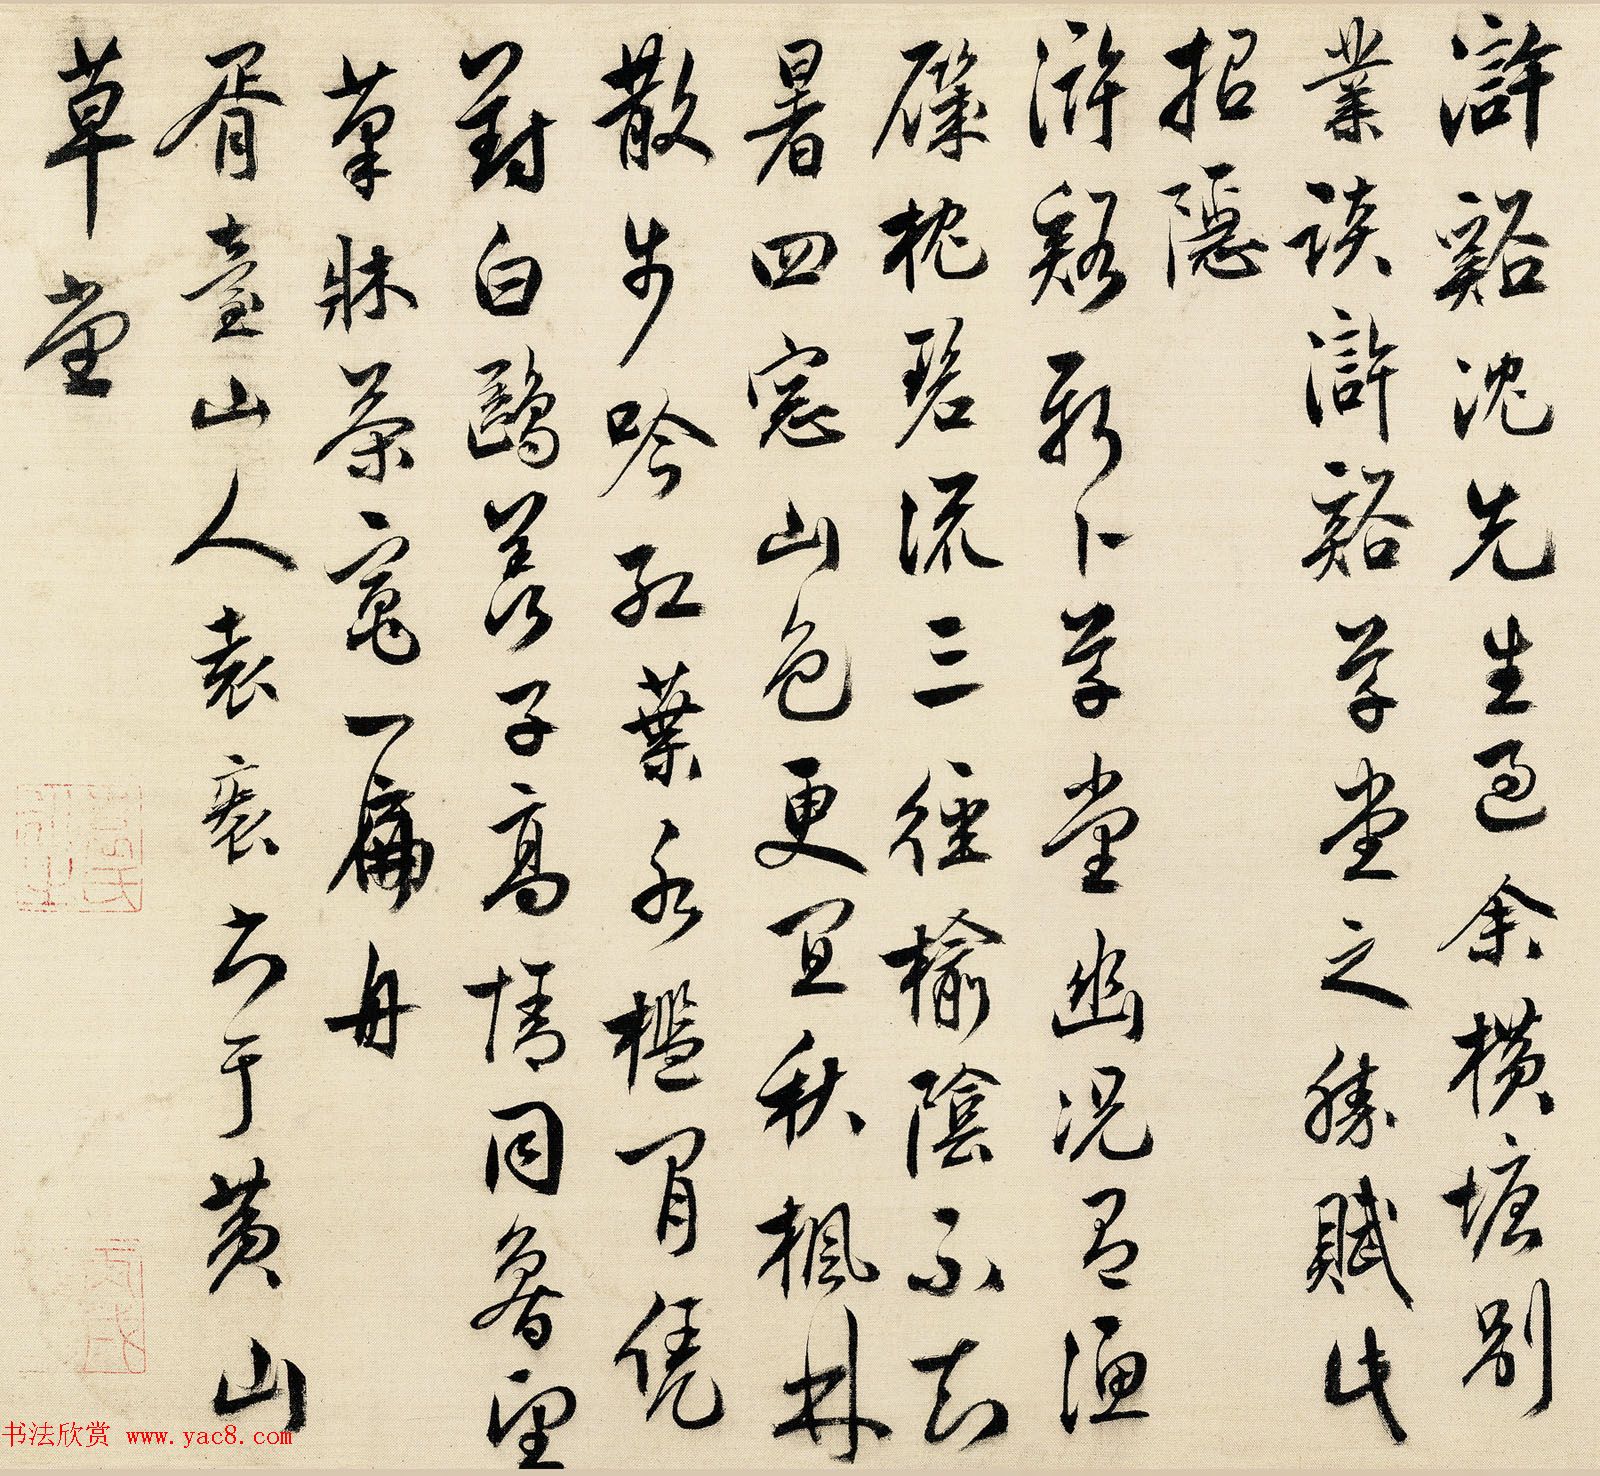 滸谿沈先生過余橫塘別
業談滸谿草堂之勝賦此
招隱
滸谿新卜草堂幽況有漁
磯枕碧流三徑榆陰不知
暑四窓山色更宜秋楓林
散步吟紅葉水檻閒凭
對白鷗羨子高情同魯望
筆牀茶竈一扁舟
胥臺山人袁袠書于黃山
草堂
书法欣赏 www.yac8.com